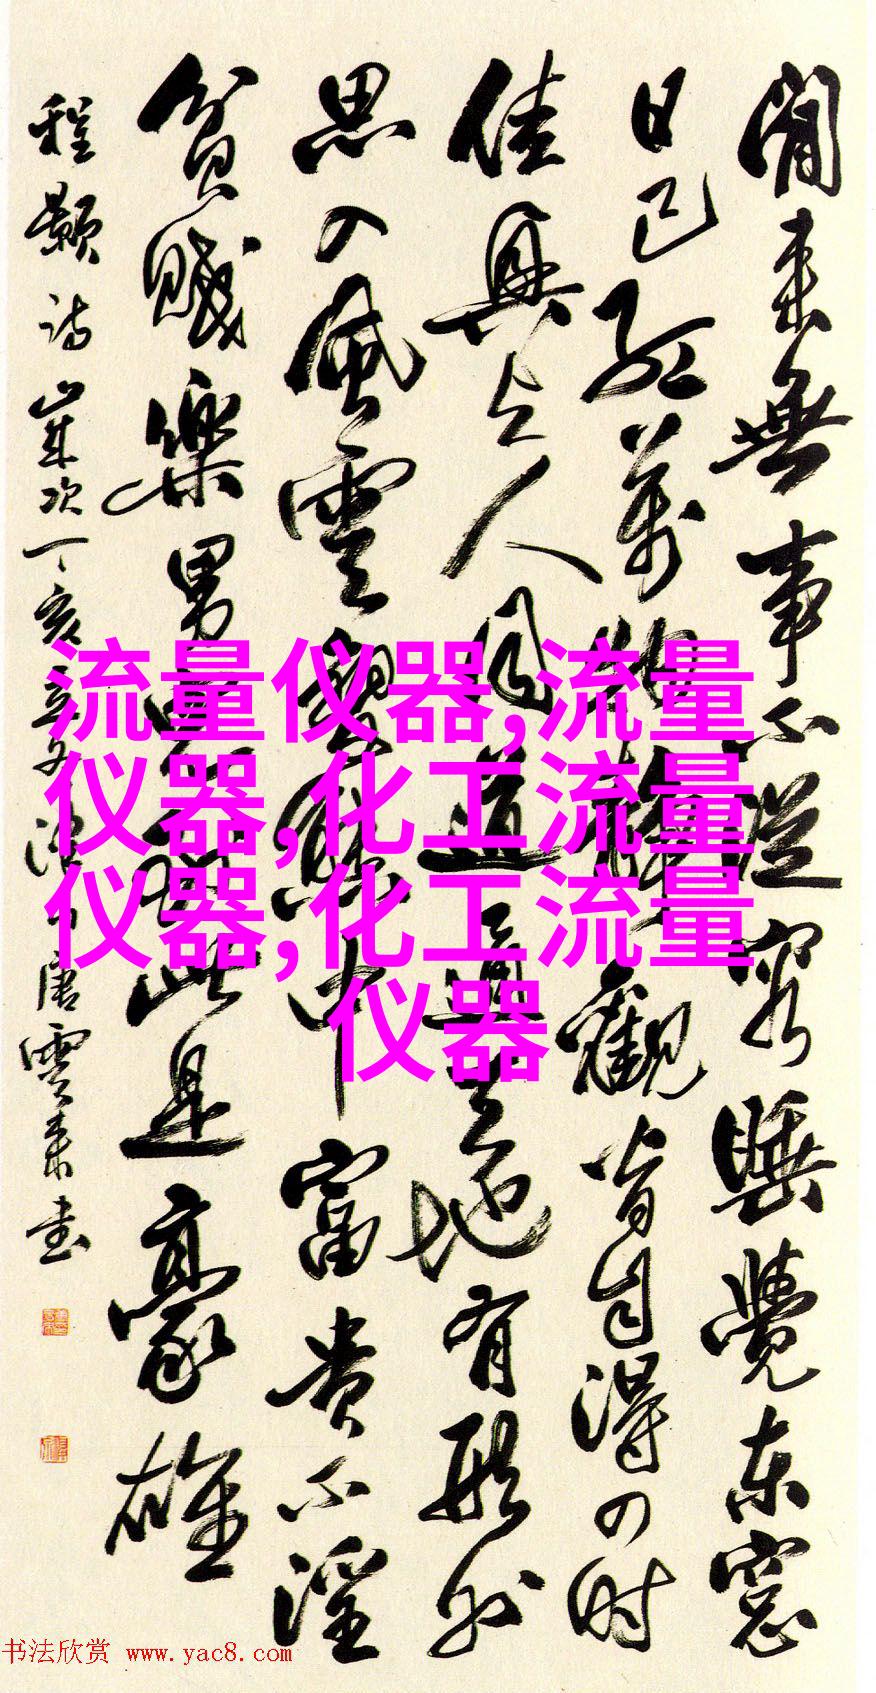 閒来無事不從容睡覺东窓
日已紅萬物静觀皆自得四时
佳興与人同道通天地有形外
思入風雲變態中富贵不淫
貧賤樂男兒到此是豪雄
程颢诗歲次丁亥唐雲来书
流量仪器,流量
仪器,化工流量
仪器,化工流量
仪器
书法欣赏 www.yac8.com